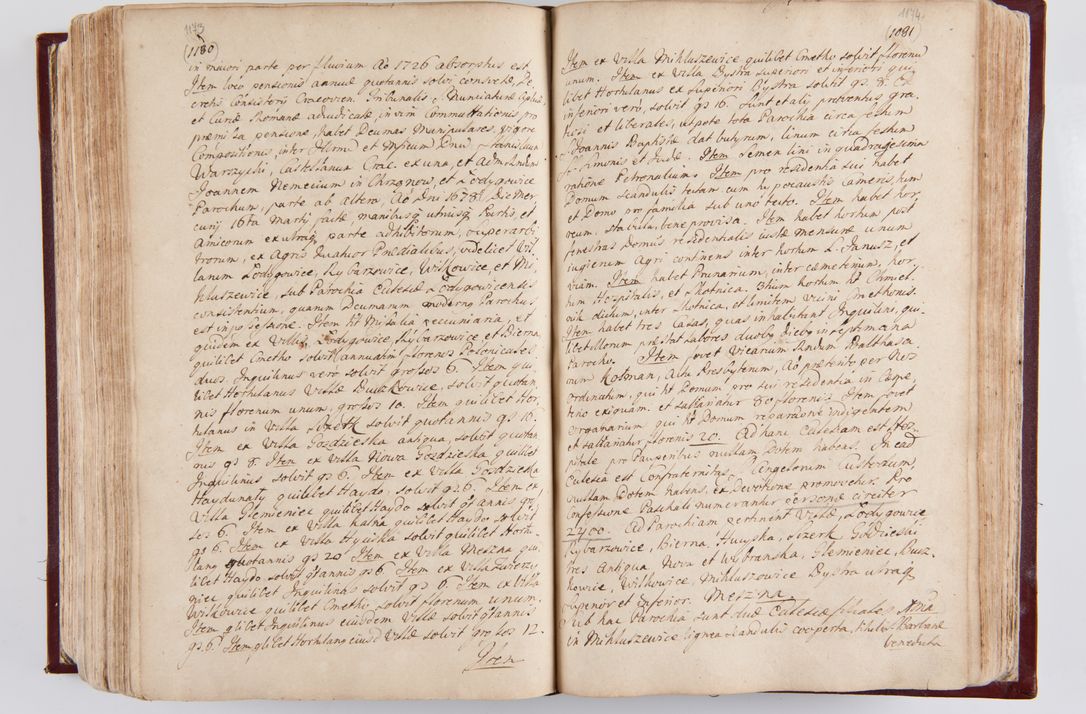 1173
(1180)
in maiori parte per fluvium Aô 1726 absorptus est.
Item loco pensionis annuæ quotannis solvi consvetæ, De-
cretis Consistorij Cracovien: Tribunalis, Nunciaturæ
et Curiæ Romanæ adiudicatæ, in vim Commutationis pro
præmissa pensione, habet Decimas Manipulares, vigore
Compositionis, inter Illrem et Mfficum Dnum Stanislaum
Warszycki, Castellanum Crac. ex una, et Admodum
Joannem Nemecium in Chrzanow, et Lodygowice
Parochum, parte ab altera, Aô Dni 1678, Die Mer-
curij 16ta Martij factæ, manibusq utriusq Partis, et
Amicorum ex utraq parte adhibitorum,
trorum, ex Agris Quatuor Prædialibus, videlicet Vil-
larum Lodygowice, Rybarzowice, Wilkowice, et Mi-
kluszewice, sub Parochia Ecclesiæ Lodygovicensis
consistentium, quarum Decimarum modernq Parochus
est in possessione. Item ht Missalia pecuniaria, et
quidem ex Villis Lodygowice, Rybarzowice et Bierna
quilibet Cmetho solvit annuatim florenos Polonicales
duos, Inquilinus vero solvit grossos 6. Item qui-
libet Hortulanus Villæ Buczkowice, solvit quotan-
nis florenum unum, grossos 10. Item quilibet Hor-
tulanus in Villa Szczerk solvit quotannis gs 18.
Item ex Villa Gozdzieska antiqua, solvit quotan-
nis gs 8. Item ex Villa Nowa Gozdzieska quilibet
Inquilinus solvit gs 6. Item ex Villa Gozdzieska
Haydunaty quilibet Haydo, solvit gs 6. Item ex
Villa Glemieniec quilibet Haydo solvit qtannis gros-
sos 6. Item ex Villa Kalna quilibet Haydo solvit
gs 6. Item ex Villa Hucisko solvit quilibet Hortu-
lanq quotannis gs 20. Item ex Villa Meszna qui-
libet Haydo solvit qtannis gs 6. Item ex Villa
quilibet Inquilinus solvit gs 6. Item ex Villa
Wilkowice quilibet Cmetho solvit florenum unum.
Item qlibet Inquilinus eiusdem Villæ solvit qtannis
gs 6. Item, qlibet Hortulanq eiusd Villæ solvit grossos 12.
Item
1174
(1081)
Item ex Villa Mikluszewice quilibet Cmetho solvit florenum
unum. Item ex Villa Bystra superiori et inferiori qui-
libet Hortulanus ex superiori Bystra solvit gs. 8. Ex
inferiori verò, solvit gs 16. Sunt et alij proventus gra-
tiosi et liberales, utpote tota Parochia circa festum
S. Joannis Baptistæ dat butyrum, linum circa festum
SS. Simonis et Judæ. Item Semen lini in quadragesima
ratione Petronalium. Item pro residentia sui habet
Domum scandulis tectam cum hypocaustis cameris, hum
et Domo pro familia sub uno tecto. Item habet hor-
reum, stabula, bene provisa. Item habet hortum post
fenestras Domus residentialis iustæ mensuræ unum
iugerum Agri continens inter hortum L. Janusz, et
viam. Item habet Prunarium, inter cæmeterium, hor-
tum Hospitalis, et Skotnica. 3tium hortum ht Chmiel-
nik dictum, inter Skotnica, et limitem vicini Cmethonis.
Item habet tres Casas, quas inhabitant Inquilini, qui-
libet illorum præstat labores duobq diebq in septimana
Parocho. Item fovet Vicarium Rndum Balthasa-
rum Kosman, actu Presbyterum, Aô præterito per Nos
ordinatum, qui ht Domum pro sui residentia in Cæme-
terio exiguam, et sallariatur 80 florenis. Item fovet
organarium qui ht Domum reparatione indigentem
et sallariatur florenis 20. Ad hanc Ecclesiam est Hos-
pitale pro Pauperibus nullam Dotem habens. In ead
Ecclesia est Confraternitas Angelorum Custodum,
nullam Dotem habens, ex Devotione promovetur. Pro
Confessione Paschali numerantur Personæ circiter
2400. Ad Parochiam pertinent Villæ, Lodygowice
Rybarzowice, Bierna, Hucyska, Szczerk Godzieski
tres Antiqua Nova et Wybranska, Glemieniec, Bucz-
kowice, Wilkowice, Mikluszowice Bystra utraq
superior et Inferior. Meszna
Ad hac Parochia sunt duæ Ecclesiæ filiales Altera
in Mikluszewice lignea scandulis cooperta, tituli S. Barbaræ
benedicta